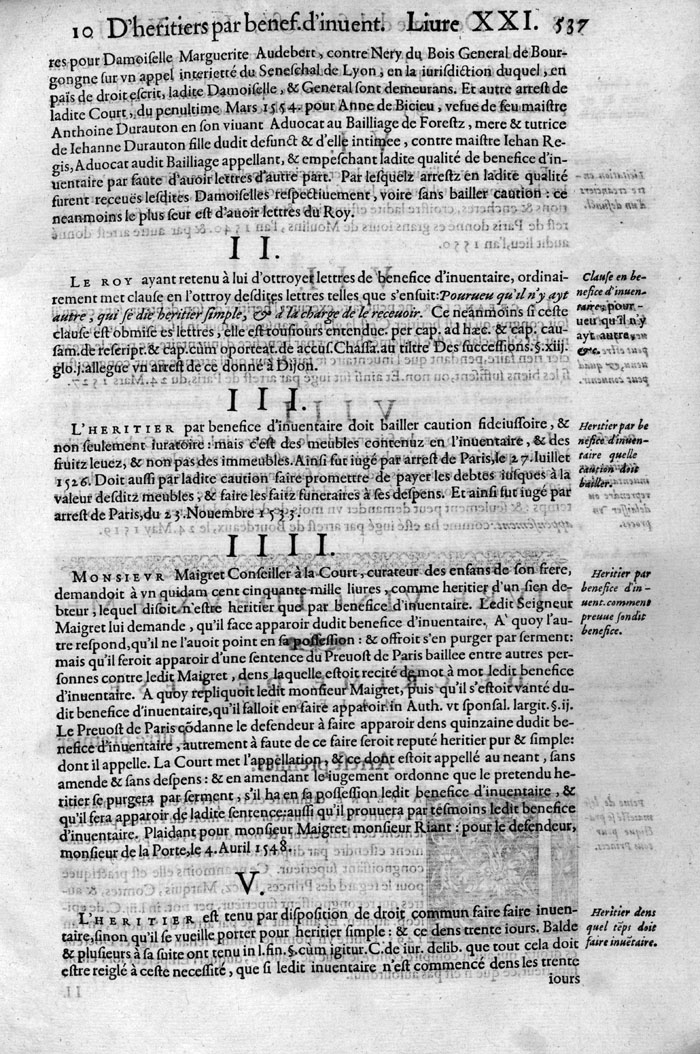 10 D'heritiers par benef.d'inuent. Liure XXI. 537
res pour Damoiselle Marguerite Audebert, contre Nery du Bois General de Bour-
gongne sur vn appel interietté du Seneschal de Lyon, en la iurisdiction duquel, en
païs de droit escrit, ladite Damoiselle, & General sont demeurans. Et autre arrest de
ladite Court, du penultime Mars 1554. pour Anne de Bicieu, vefue de feu maistre
Anthoine Durauton en son viuant Aduocat au Bailliage de Forestz, mere & tutrice
de Iehanne Durauton fille dudit defunct & d'elle intimee, contre maistre Iehan Re-
gis, Aduocat audit Bailliage appellant, & empeschant ladite qualité de benefice d'in-
uentaire par faute d'auoir lettres d'autre part. Par lesquelz arrestz en ladite qualité
furent receuës lesdites Damoiselles respectiuement, voire sans bailler caution : ce
neanmoins le plus seur est d'auoir lettres du Roy.
II.
LE ROY ayant retenu à lui d'ottroyer lettres de benefice d'inuentaire, ordinai-
rement met clause en l'ottroy desdites lettres telles que s'ensuit: Pourueu qu'il n'y ayt
autre, qui se die heritier simple, & à la charge de le receuoir. Ce neanmoins si ceste
clause est obmise es lettres, elle est tousiours entendue. per cap. ad hæc. & cap. cau-
sam. de rescript. & cap. cum oporteat. de accus. Chassa. au tiltre Des successions. §. xiij.
glo. j. allegue vn arrest de ce donné à Dijon.
Clause en be-
nefice d'inuen-
taire, pour-
ueu qu'il n'y
ayt autre,
&c.
III.
L'HERITIER par benefice d'inuentaire doit bailler caution fideiussoire, &
non seulement iuratoire : mais c'est des meubles contenuz en l'inuentaire, & des
fruitz leuez, & non pas des immeubles. Ainsi fut iugé par arrest de Paris, le 27. Iuillet
1526. Doit aussi par ladite caution faire promettre de payer les debtes iusques à la
valeur desditz meubles, & faire les faitz funeraires à ses despens. Et ainsi fut iugé par
arrest de Paris, du 23. Nouembre 1533.
Heritier par be
nefice d'inuen-
taire quelle
caution doit
bailler.
IIII.
MONSIEVR Maigret Conseiller à la Court, curateur des enfans de son frere,
demandoit à vn quidam cent cinquante mille liures, comme heritier d'un sien de-
bteur, lequel disoit n'estre heritier que par benefice d'inuentaire. Ledit Seigneur
Maigret lui demande, qu'il face apparoir dudit benefice d'inuentaire. A quoy l'au-
tre respond, qu'il ne l'auoit point en sa possession : & offroit s'en purger par serment:
mais qu'il feroit apparoir d'une sentence du Preuost de Paris baillee entre autres per-
sonnes contre ledit Maigret, dens laquelle estoit recité de mot à mot ledit benefice
d'inuentaire. A quoy repliquoit ledit monsieur Maigret, puis qu'il s'estoit vanté du-
dit benefice d'inuentaire, qu'il falloit en faire apparoir. in Auth. vt sponsal. largit. §. ij.
Le Preuost de Paris cōdanne le defendeur à faire apparoir dens quinzaine dudit be-
nefice d'inuentaire, autrement à faute de ce faire seroit reputé heritier pur & simple:
dont il appelle. La Court met l'appellation, & ce dont estoit appellé au neant, sans
amende & sans despens : & en amendant le iugement ordonne que le pretendu he-
ritier se purgera par serment, s'il ha en sa possession ledit benefice d'inuentaire, &
qu'il fera apparoir de ladite sentence: aussi qu'il prouuera par tesmoins ledit benefice
d'inuentaire. Plaidant pour monsieur Maigret monsieur Riant : pour le defendeur,
monsieur de la Porte, le 4. Auril 1548.
Heritier par
benefice d'in-
uent. comment
preuue sondit
benefice.
V.
L'HERITIER est tenu par disposition de droit commun faire faire inuen-
taire, sinon qu'il se vueille porter pour heritier simple : & ce dens trente iours. Balde
& plusieurs à sa suite ont tenu in l. fin. §. cum igitur. C. de iur. delib. que tout cela doit
estre reiglé à ceste necessité, que si ledit inuentaire n'est commencé dens les trente
iours
Heritier dens
quel tēps doit
faire inuētaire.